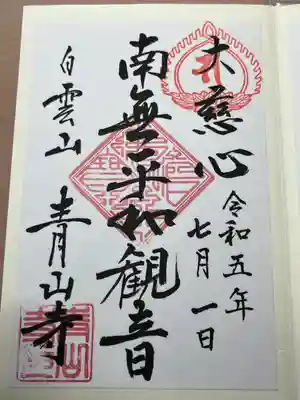 大慈心
令和五年
七月一日
南無平和観音
白雲山
青山寺